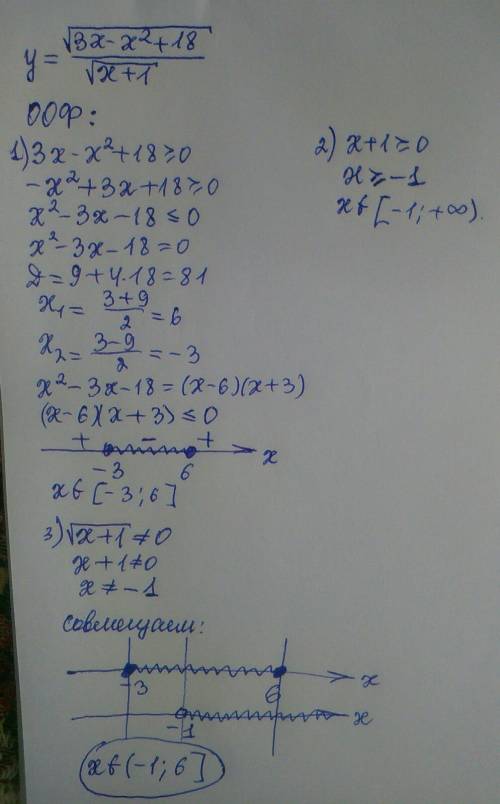 y = √(3x-x²+18) / √(x+1)
ООФ:
1) 3x-x²+18≥0
-x²+3x+18≥0
x²-3x-18≤0
x²-3x-18=0
Д=9+4·18=81
x₁= (3+9)/2 =6
x₂= (3-9)/2 =-3
x²-3x-18=(x-6)(x+3)
(x-6)(x+3)≤0
+ - +
-3 6 x
x∈[-3;6]
2) x+1≥0
x≥-1
x∈[-1;+∞).
3) √(x+1)≠0
x+1≠0
x≠-1
совмещаем:
-3 6 x
-1 x
x∈(-1;6]